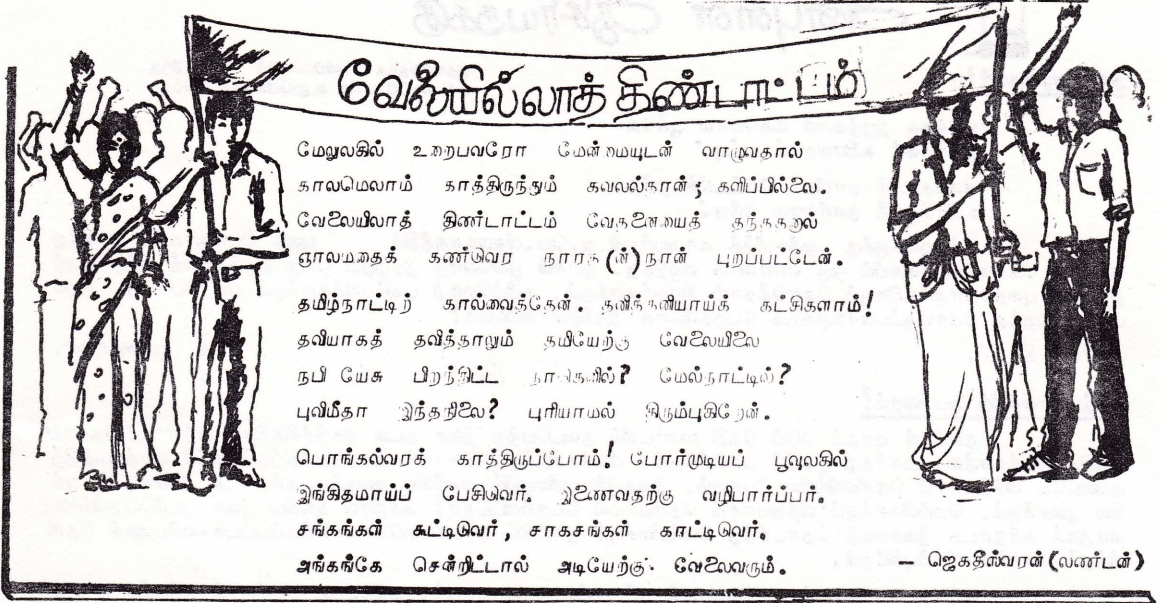 வேலையில்லாத் திண்டாட்டம்
மேலுலகில் உறைபவரோ மேன்மையுடன் வாழுவதால்
காலமெலாம் காத்திருந்தும் கவலல்தான்; களிப்பில்லை.
வேலையிலாத் திண்டாட்டம் வேதனையைத் தந்ததால்
ஞாலமதைக் கண்டுவர நாரத(ன்)நான் புறப்பட்டேன்.
தமிழ்நாட்டிற் கால்வைத்தேன் தனித்தனியாய்க் கட்சிகளாம்!
தவியாகத் தவித்தாலும் தமியேற்கு வேலையிலை
நபி யேசு பிறந்திட்ட நாடுகளில்? மேல்நாட்டில்?
புவிமீதா இந்தநிலை? புரியாமல் திரும்புகிறேன்.
பொங்கல்வரக் காத்திருப்போம்! போர்முடியப் பூவுலகில்
இங்கிதமாய்ப் பேசிடுவர். இணைவதற்கு வழிபார்ப்பர்.
சங்கங்கள் கூட்டிடுவர், சாகசங்கள் காட்டிடுவர்.
அங்கங்கே சென்றிட்டால் அடியேற்கு வேலைவரும்.
— ஜெகதீஸ்வரன்(லண்டன்)